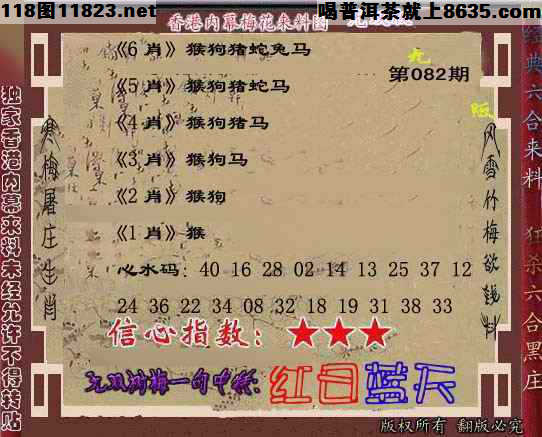 118图11823.net
喝普洱茶就上8635.com
香港内幕梅花来料图
《6 肖》猴狗猪蛇兔马
第082期
《5 肖》猴狗猪蛇马
《4 肖》猴狗猪马
《3 肖》猴狗马
《2 肖》猴狗
《1 肖》猴
心水码: 40 16 28 02 14 13 25 37 12
24 36 22 34 08 32 18 19 31 38 33
信心指数: ★★★
无双湖梅一句中特: 红日蓝天
版权所有 翻版必究
独家香港内幕来料未经允许不得转贴
寒梅屠庄生肖
风雪竹梅欲钱料
经典六合来料
狂杀六合黑庄